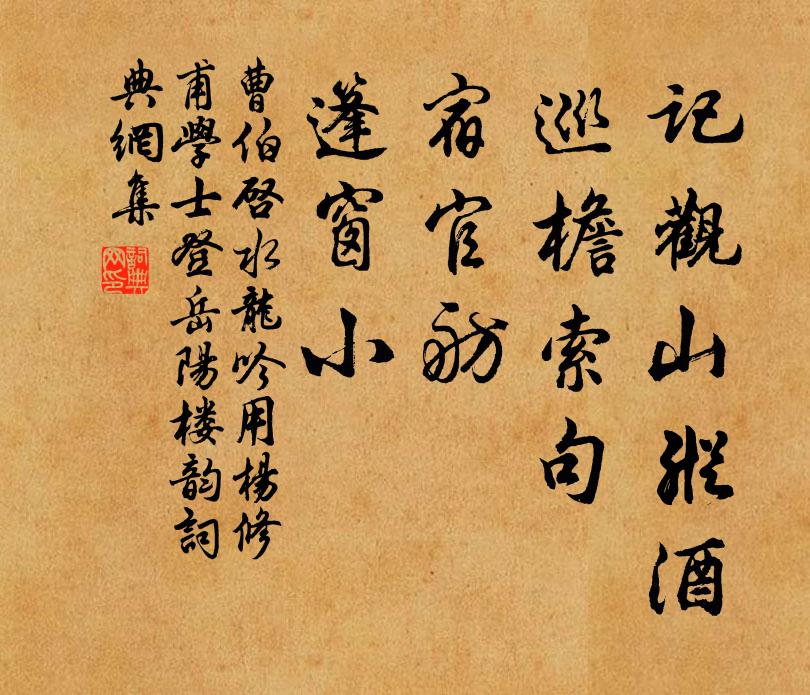 記觀山縱酒
巡檐索句
宿官舫
蓬窗小
曹伯啓水龍吟用楊修
甫學士登岳陽楼韵詞
典網集
詞典網印